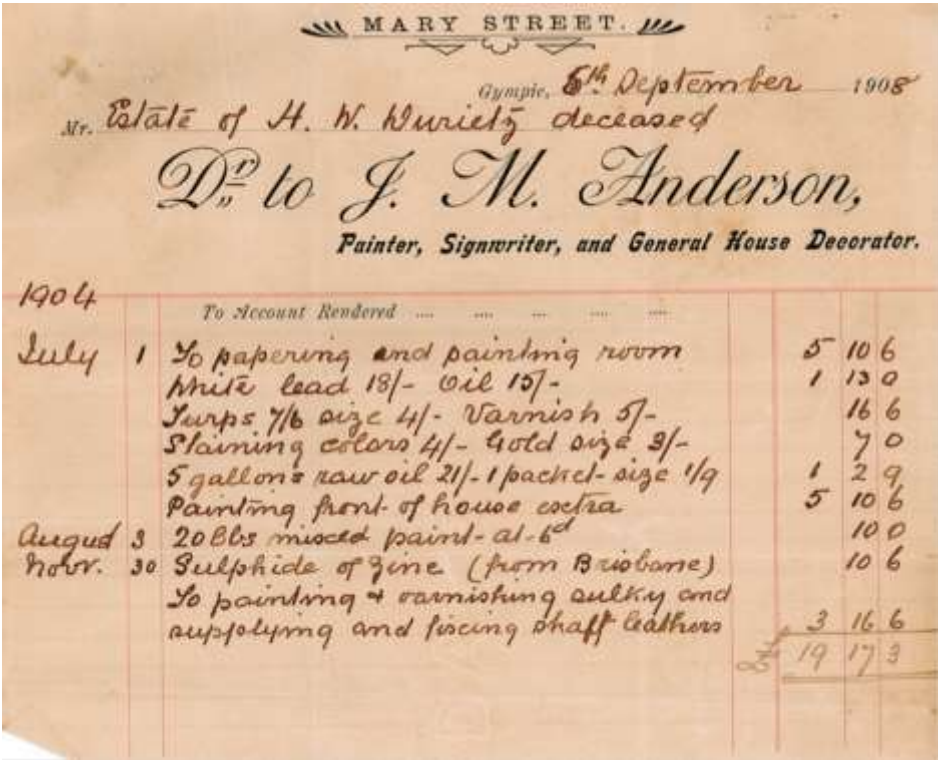 MARY STREET.
Gympie, 5th September 1908
Mr. Estate of H. W. Durietz deceased
Dr. to J. M. Anderson,
Painter, Signwriter, and General House Decorator.
1904
To Account Rendered .... .... ... .... ....
July 1 To papering and painting room 5 10 6
White lead 18/- Oil 15/- 1 13 0
Turps 7/6 size 4/- Varnish 5/- 16 6
Staining colors 4/- Gold size 3/- 7 0
5 gallons raw oil 21/- 1 packet size 1/9 1 2 9
Painting front of house extra 5 10 6
August 3 20 lbs mixed paint at 6d 10 0
Novr. 30 Sulphide of Zinc (from Brisbane) 10 6
To painting & varnishing sulky and
supplying and fixing shaft leathers 3 16 6
19 17 3